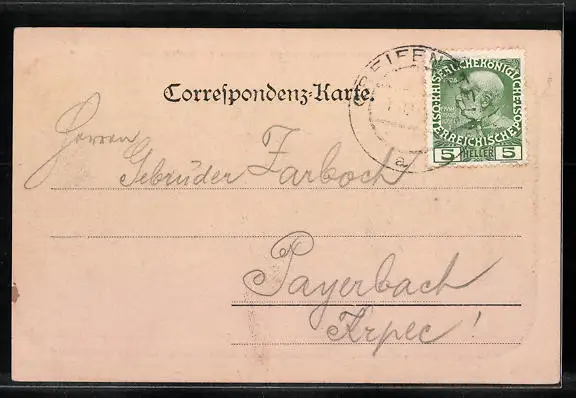 Correspondenz-Karte.
GREIFEN
KAISERLICHE KÖNIGLICHE ÖSTERREICHISCHE POST
5 HELLER 5
Herren
Gebrüder Zarboch
Payerbach